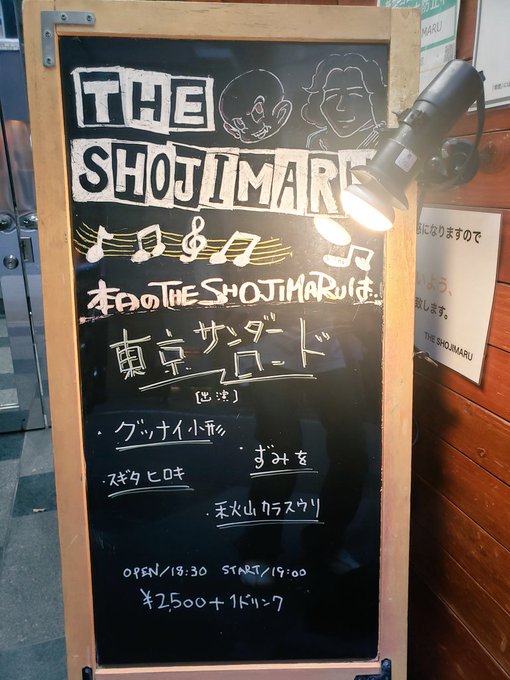 THE
SHOJIMARU
本日のTHE SHOJIMARUは..
東京サンダーロード
[出演]
・グッナイ小形
・ずみを
・スギタヒロキ
・秋山カラスウリ
OPEN/18:30 START/19:00
¥2,500+1ドリンク
MARU
になりますので
いよう、
致します。
THE SHOJIMARU